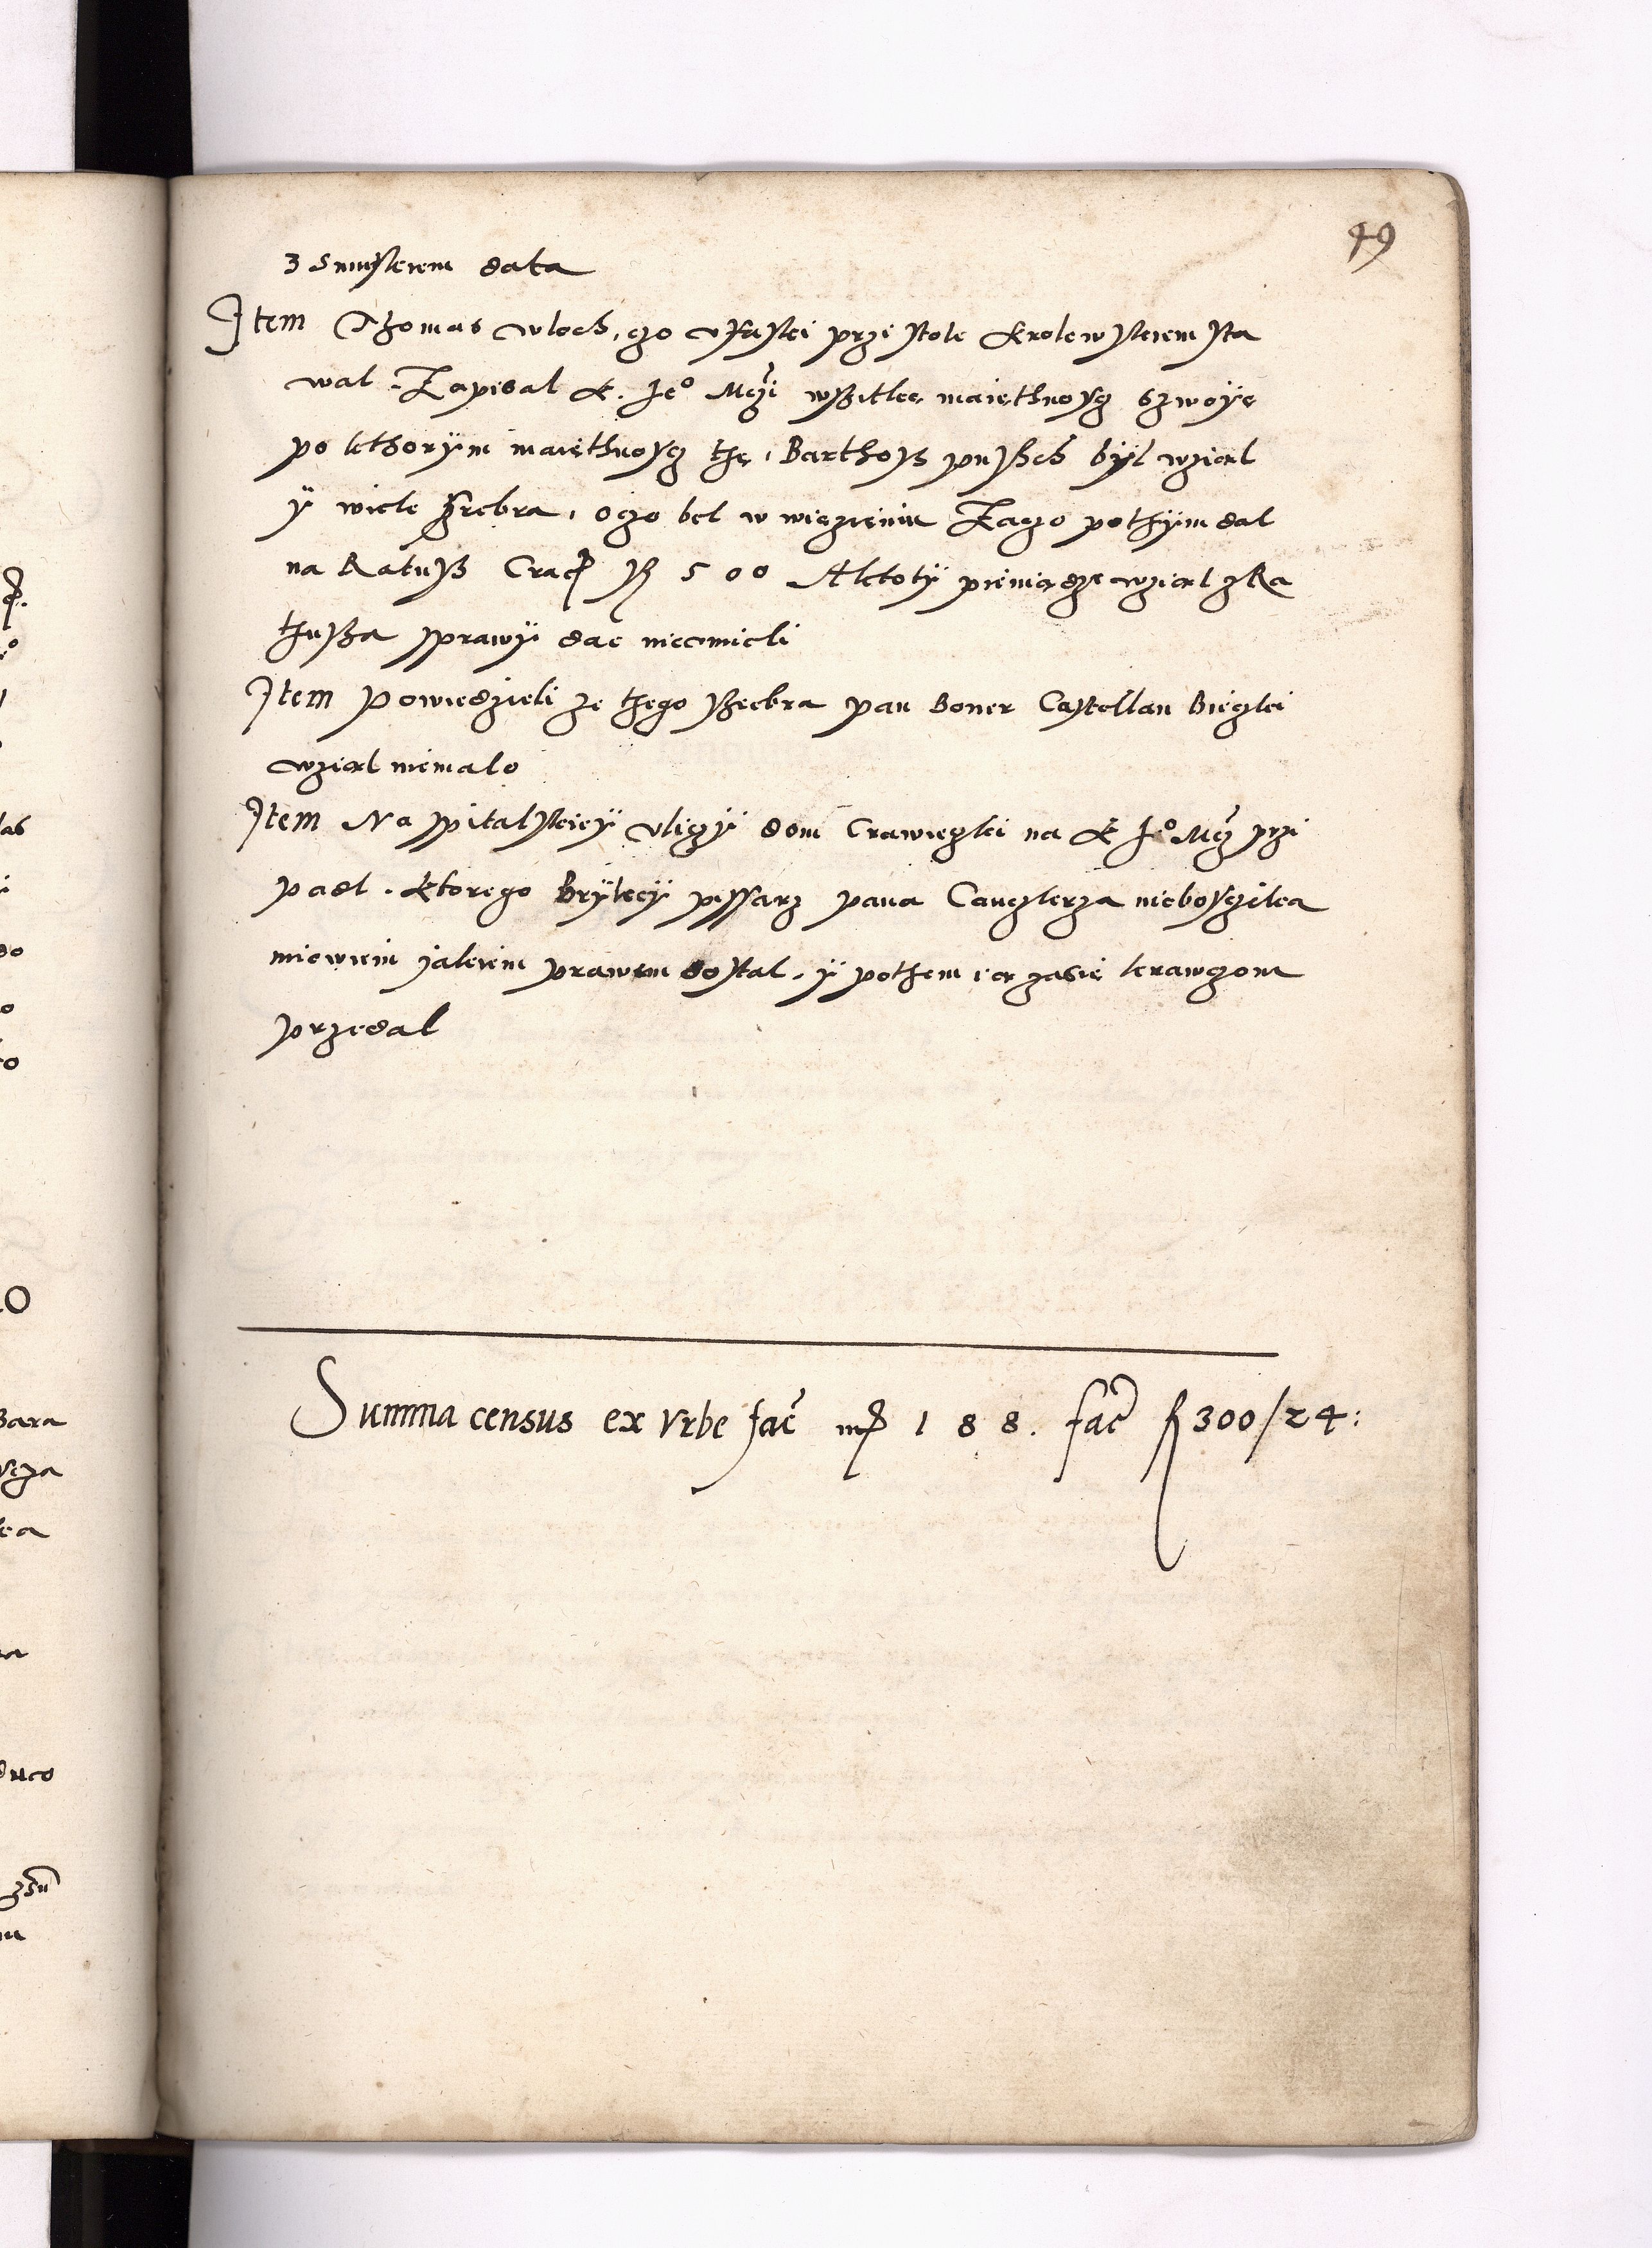 49
z Smuskiem data
Item Thomas Wloch, czo v Kaski przi stole Krolewskiem sta
wal. Zapisal K. Jeo Mczi wszitkę maiethnoscz szwoye
po kthorym maiethnoscz the, Barthosz puszch byl wzial
y wiele szrebra, oczo bel w wiezieniu Zaczo pothym dal
na Ratusz Crac fl 500 A kto ty pieniądze wzial z Ra
thusza sprawy dac nieumieli
Item Powiedzieli ze thego szrebra pan Boner Castellan Bieczki
wzial niemalo
Item Na spitalskiey vliczy dom Crawieczki na K Jeo Mcz przi
padl. Ktorego Brykcy pissarz pana Canczlerza nieboszczika
niewiem jakiem prawem dostal, y pothem i en zasie krawczom
przedal
Summa census ex Vrbe fac mr 188. fac fl 300/24: